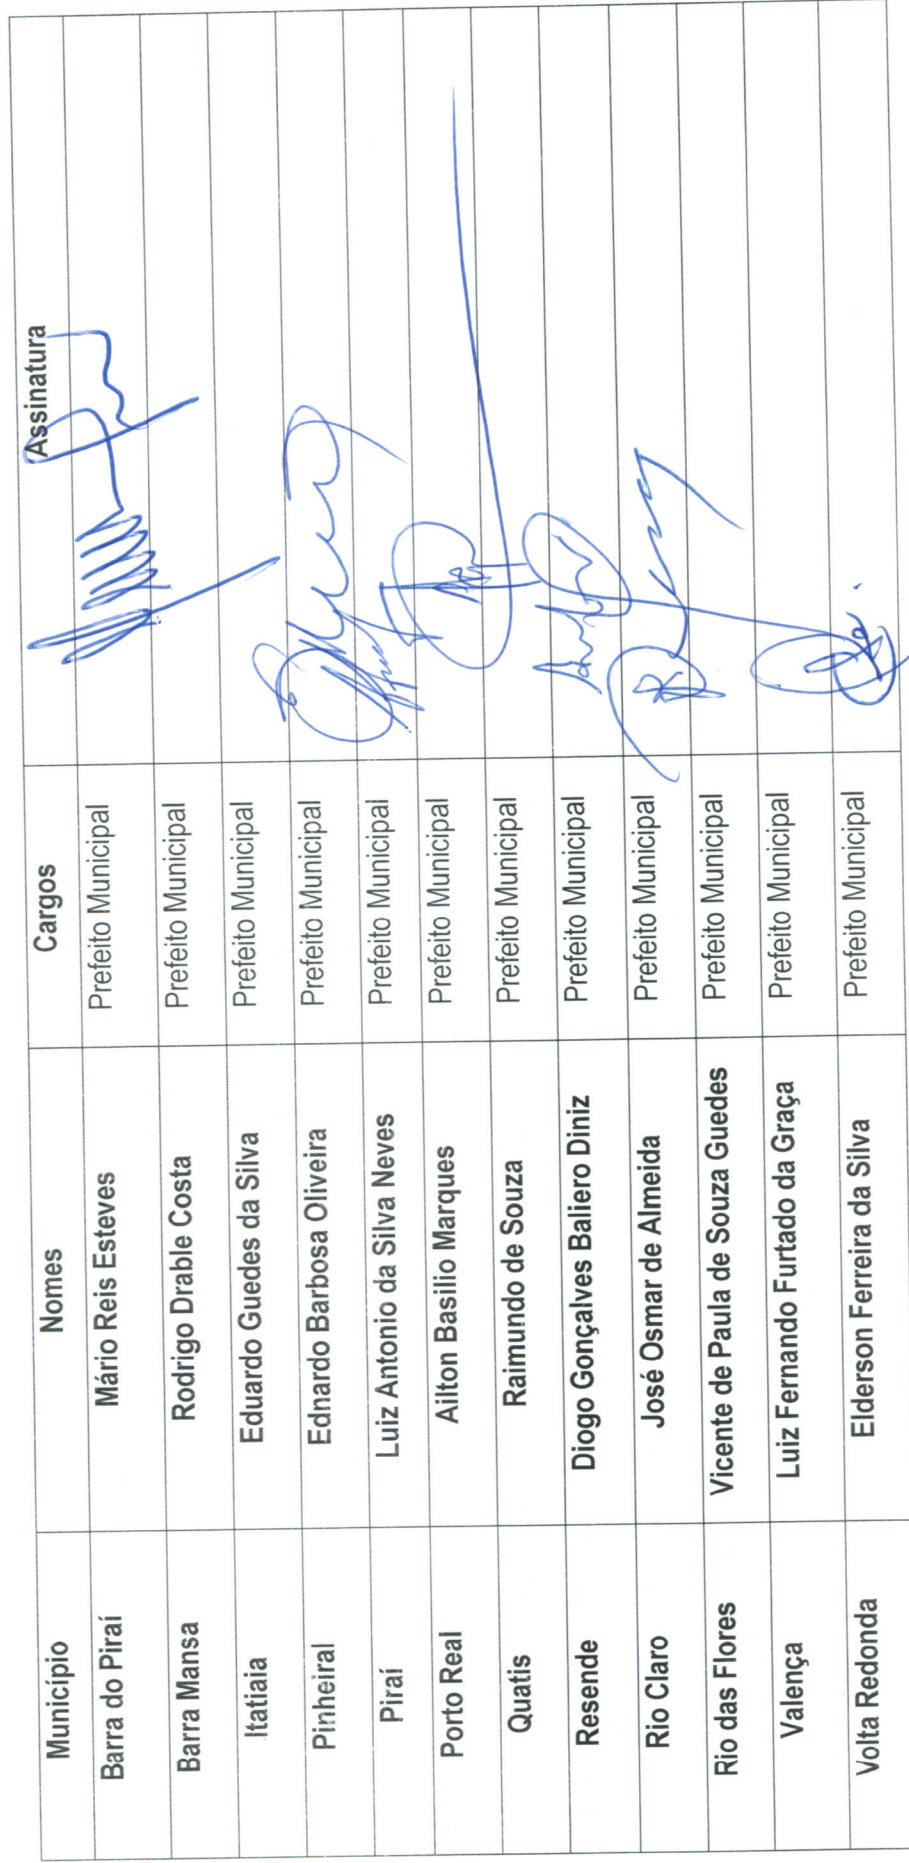 Município Nomes Cargos Assinatura
Barra do Piraí Mário Reis Esteves Prefeito Municipal
Barra Mansa Rodrigo Drable Costa Prefeito Municipal
Itatiaia Eduardo Guedes da Silva Prefeito Municipal
Pinheiral Ednardo Barbosa Oliveira Prefeito Municipal
Piraí Luiz Antonio da Silva Neves Prefeito Municipal
Porto Real Ailton Basilio Marques Prefeito Municipal
Quatis Raimundo de Souza Prefeito Municipal
Resende Diogo Gonçalves Baliero Diniz Prefeito Municipal
Rio Claro José Osmar de Almeida Prefeito Municipal
Rio das Flores Vicente de Paula de Souza Guedes Prefeito Municipal
Valença Luiz Fernando Furtado da Graça Prefeito Municipal
Volta Redonda Elderson Ferreira da Silva Prefeito Municipal